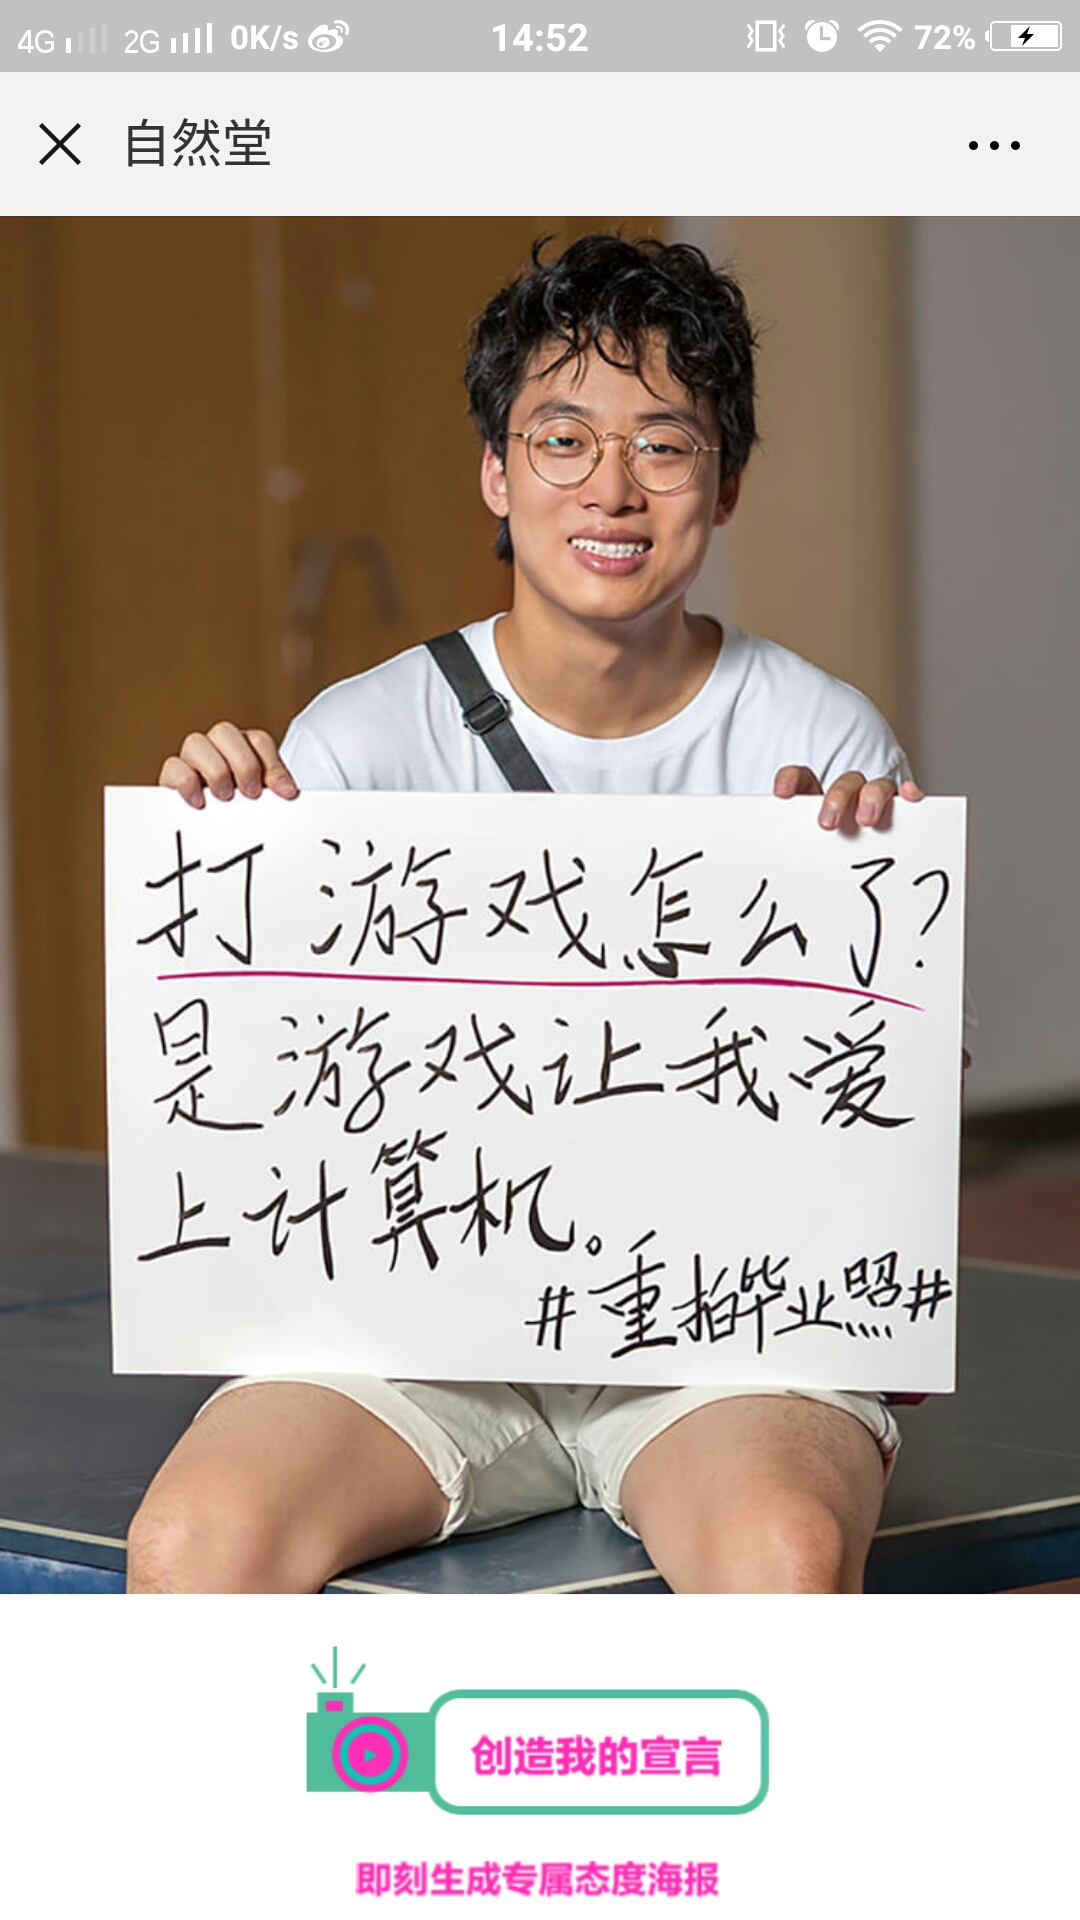 4G 2G 0K/s 14:52 72%
自然堂
打游戏怎么了?
是游戏让我爱
上计算机。
#重拍毕业照#
创造我的宣言
即刻生成专属态度海报